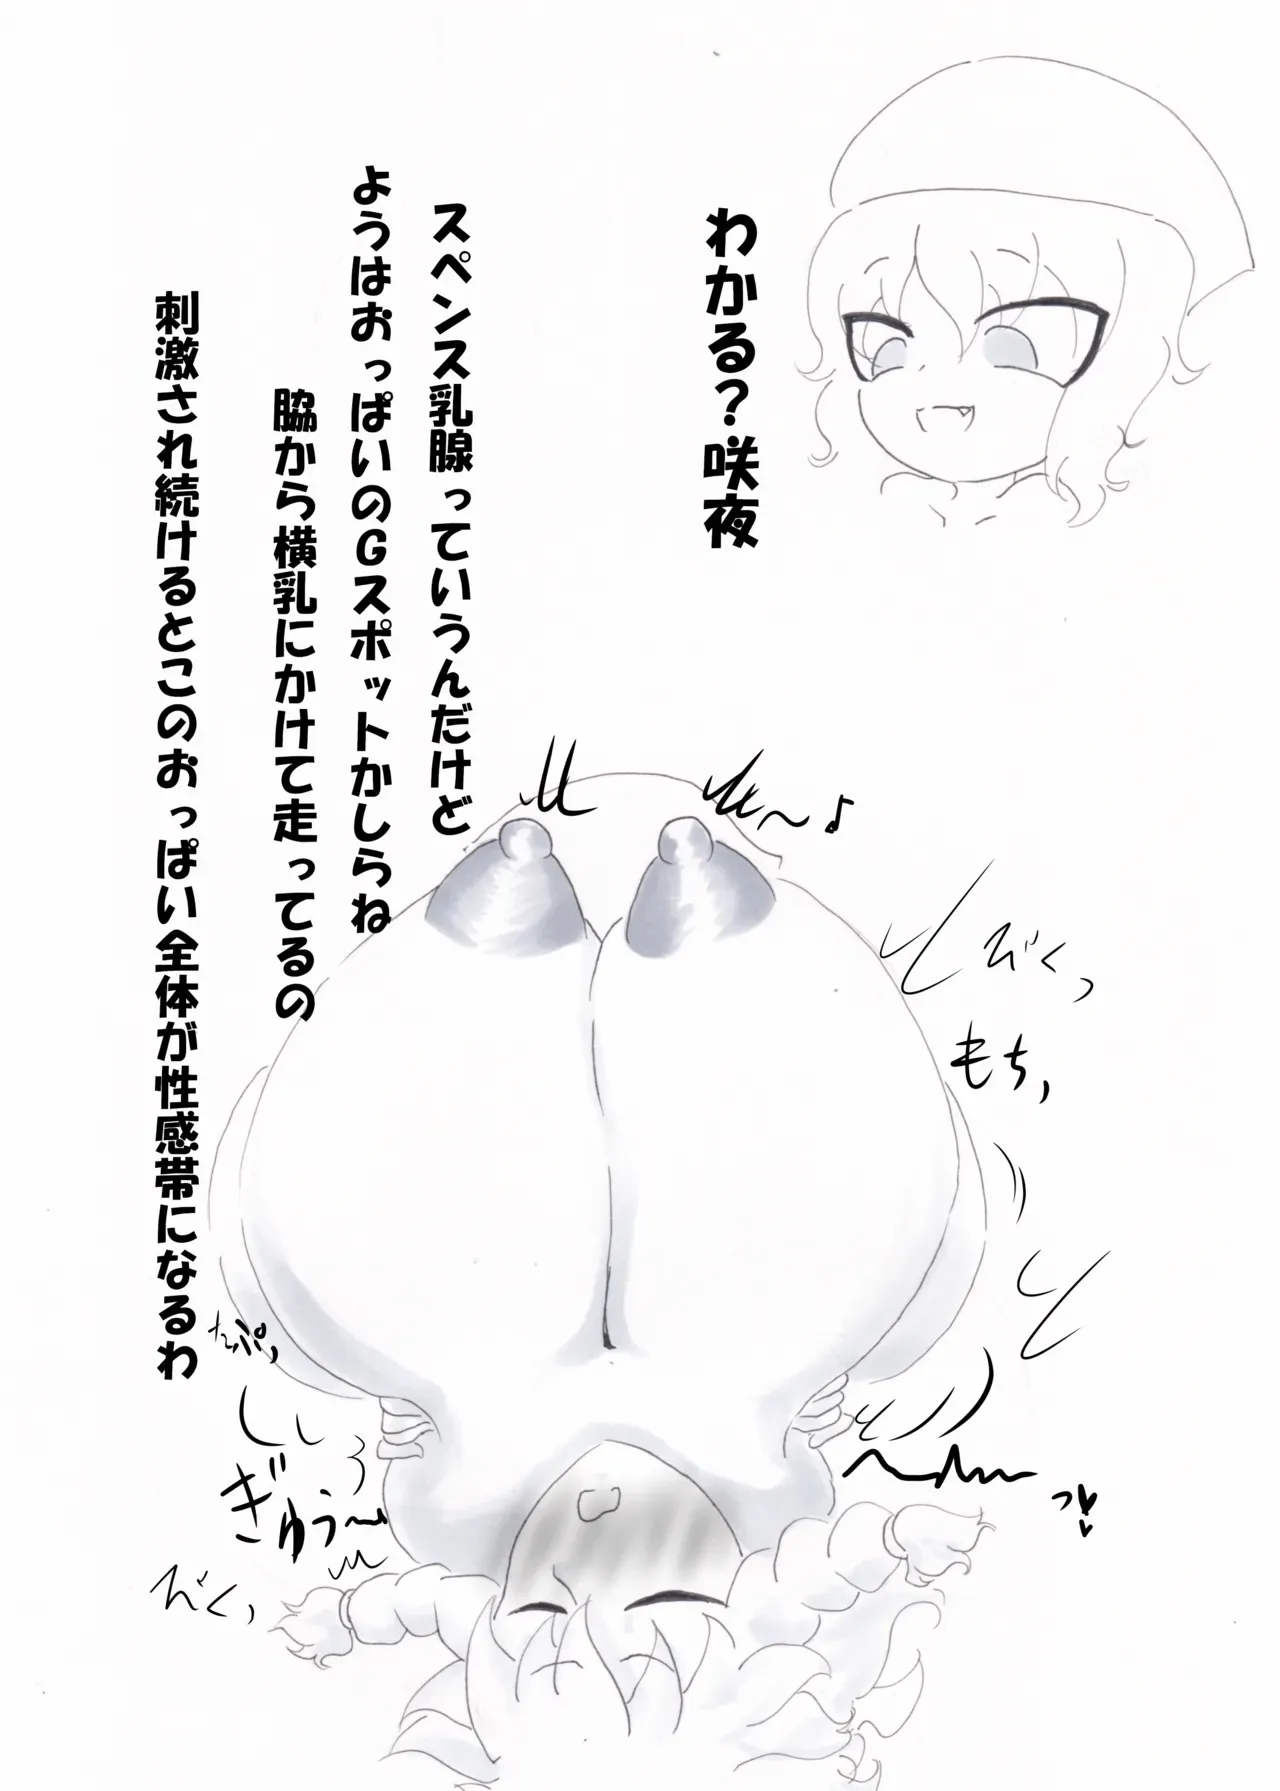 わかる?咲夜
スペンス乳腺っていうんだけど
ようはおっぱいのGスポットかしらね
脇から横乳にかけて走ってるの
刺激され続けるとこのおっぱい全体が性感帯になるわ
びくっ
もち,
たぷっ
ぎゅう〜
びくっ